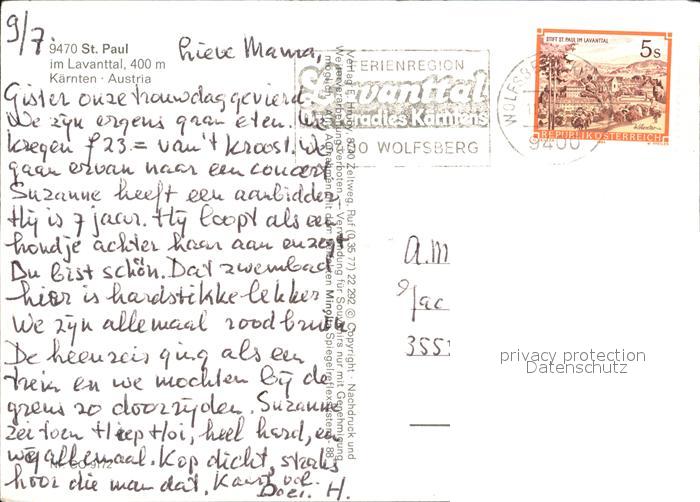 9/7.
9470 St. Paul
im Lavanttal, 400 m
Kärnten · Austria
Lieve Mama,
Gister onze trouwdag gevierd.
We zijn ergens gaan eten. We
kregen f 23 = van 't kroost. We
gaan ervan naar een concert
Suzanne heeft een aanbidder
Hij is 7 jaar. Hij loopt als een
hondje achter haar aan en zegt
Du bist schön. Dat zwembad
hier is hardstikke lekker
We zijn allemaal roodbruin
De heenreis ging als een
trein en we mochten bij de
grens zo doorrijden. Suzanne
zei toen Hiep Hoi, heel hard, en
wij allemaal. Kop dicht, straks
hoor die man dat. Karst ook.
Doei. H.
Nr. GO-9172
FERIENREGION
Lavanttal
Paradies Kärntens
9400 WOLFSBERG
WOLFSBERG
9400
STIFT ST. PAUL IM LAVANTTAL
5s
REPUBLIK ÖSTERREICH
Zeltweg, Ruf (0 35 77) 22 292 © Copyright - Nachdruck und
Verwendung für Souvenirs nur mit Genehmigung
Minolta Spiegelreflexsystem 88
A.M
Jac
3551
privacy protection
Datenschutz